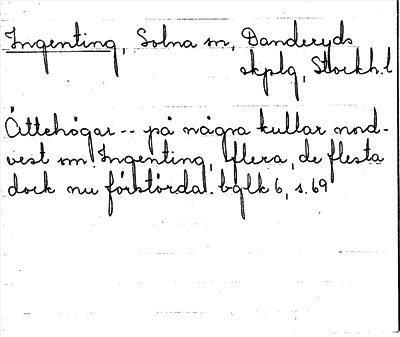 Ingenting, Solna sn, Danderyds
skplg, Stockh.l
Ättehögar -- på några kullar nord-
vest om Ingenting, flera, de flesta
dock nu förstörda. bglk 6, s. 69